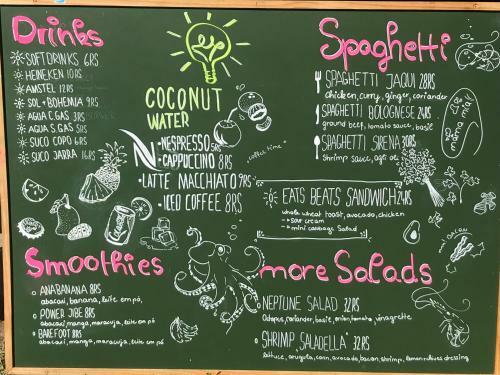 Drinks
SOFTDRINKS 6RS
HEINEKEN 10RS
AMSTEL 12RS
SOL + BOHEMIA 9RS
AGUA C.GAS 3RS
AGUA S.GAS 5RS
SUCO COPO 6RS
SUCO JARRA 16RS
COCONUT
WATER
-NESPRESSO 5RS
-CAPPUCCINO 8RS
-LATTE MACCHIATO 9RS
-ICED COFFEE 8RS
coffee time
Spaghetti
SPAGHETTI JAQUI 28RS
chicken, curry, ginger, coriander
SPAGHETTI BOLOGNESE 24RS
ground beef, tomato sauce, basil
SPAGHETTI SIRENA 30RS
shrimp sauce,
mama mia!
EATS BEATS SANDWICH 24RS
whole wheat toast, avocado, chicken
sour cream
mini cabbage salad
Smoothies
ANABANANA 8RS
abacaxi, banana, leite em pó,
POWER JBE 8RS
abacaxi, manga, maracuja, leite em pó
BAREFOOT 8RS
abacaxi, manga, maracuja, leite em pó
more Salads
NEPTUNE SALAD 32RS
Octopus, coriander, basil, onion, tomato, vinagrette
SHRIMP "SALADELLA" 32RS
lettuce, arugula, corn, avocado, bacon, shrimp, lemon chives dressing